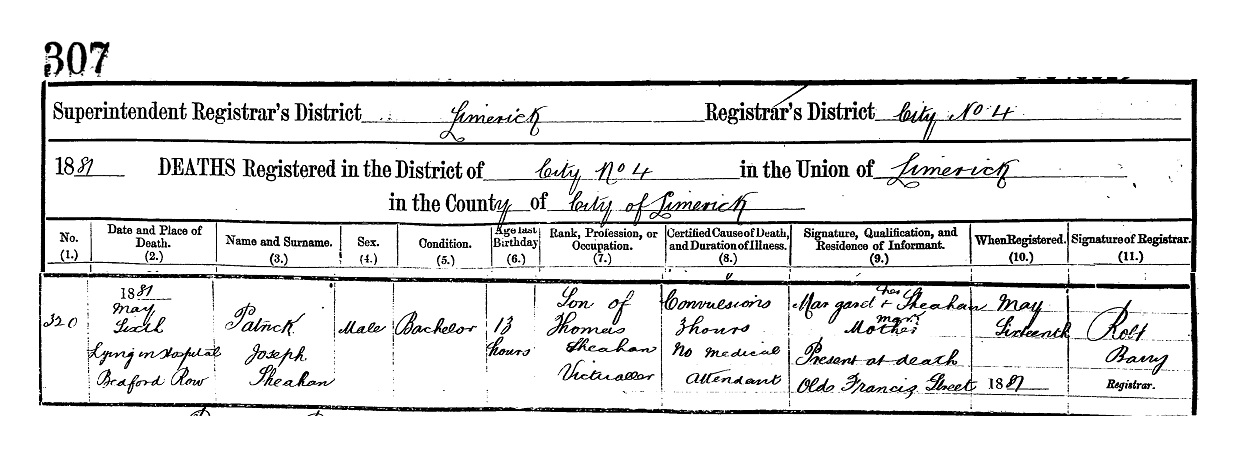 307
Superintendent Registrar's District Limerick Registrar's District City No 4
1881 DEATHS Registered in the District of City No 4 in the Union of Limerick
in the County of City of Limerick
No. (1.)
Date and Place of Death. (2.)
Name and Surname. (3.)
Sex. (4.)
Condition. (5.)
Age last Birthday (6.)
Rank, Profession, or Occupation. (7.)
Certified Cause of Death, and Duration of Illness. (8.)
Signature, Qualification, and Residence of Informant. (9.)
When Registered. (10.)
Signature of Registrar. (11.)
320
1881
May
Sixth
Lying in Hospital
Bedford Row
Patrick
Joseph
Sheahan
Male
Bachelor
13
hours
Son of
Thomas
Sheahan
Victualler
Convulsions
3 hours
No medical
Attendant
Margaret + Sheahan
her
mark
Mother
Present at death
Olds Francis Street
May
Sixteenth
1881
Robt
Barry
Registrar.